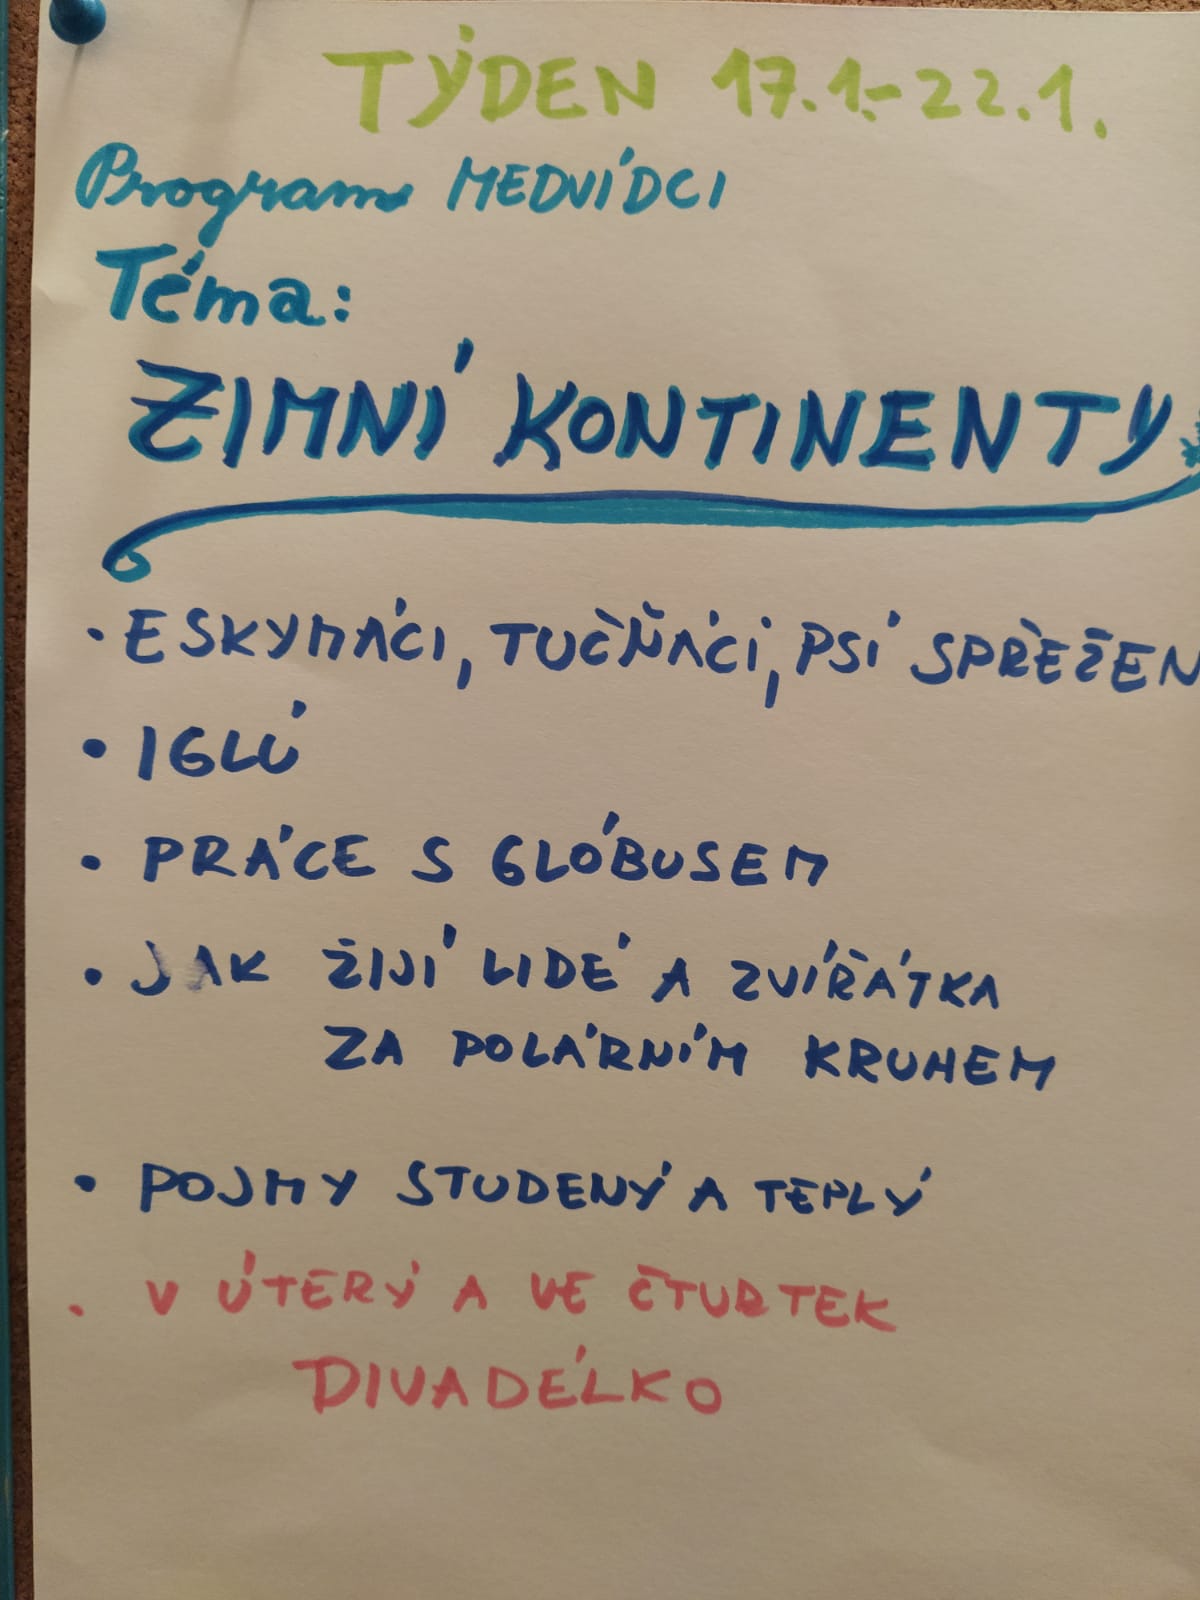 TÝDEN 17.1.-22.1.
Program MEDVÍDCI
Téma:
ZIMNÍ KONTINENTY
• ESKYMÁCI, TUČŇÁCI, PSÍ SPŘEŽEN
• IGLÚ
• PRÁCE S GLÓBUSEM
• JAK ŽIJÍ LIDÉ A ZVÍŘÁTKA
ZA POLÁRNÍM KRUHEM
• POJMY STUDENÝ A TEPLÝ
• V ÚTERÝ A VE ČTURTEK
DIVADÉLKO